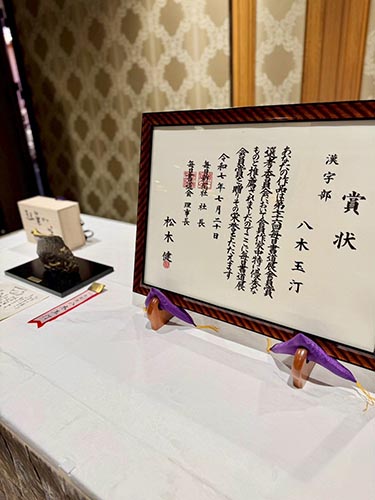 賞状
漢字部
八木玉汀
あなたの作品は第七六回毎日書道展会員賞
選考委員会において会員作品中特に優秀な
ものと推薦されましたのでここに毎日書道展
会員賞を贈りその栄誉をたたえます
令和七年七月二十日
毎日新聞社 社長
毎日書道会 理事長
松木健